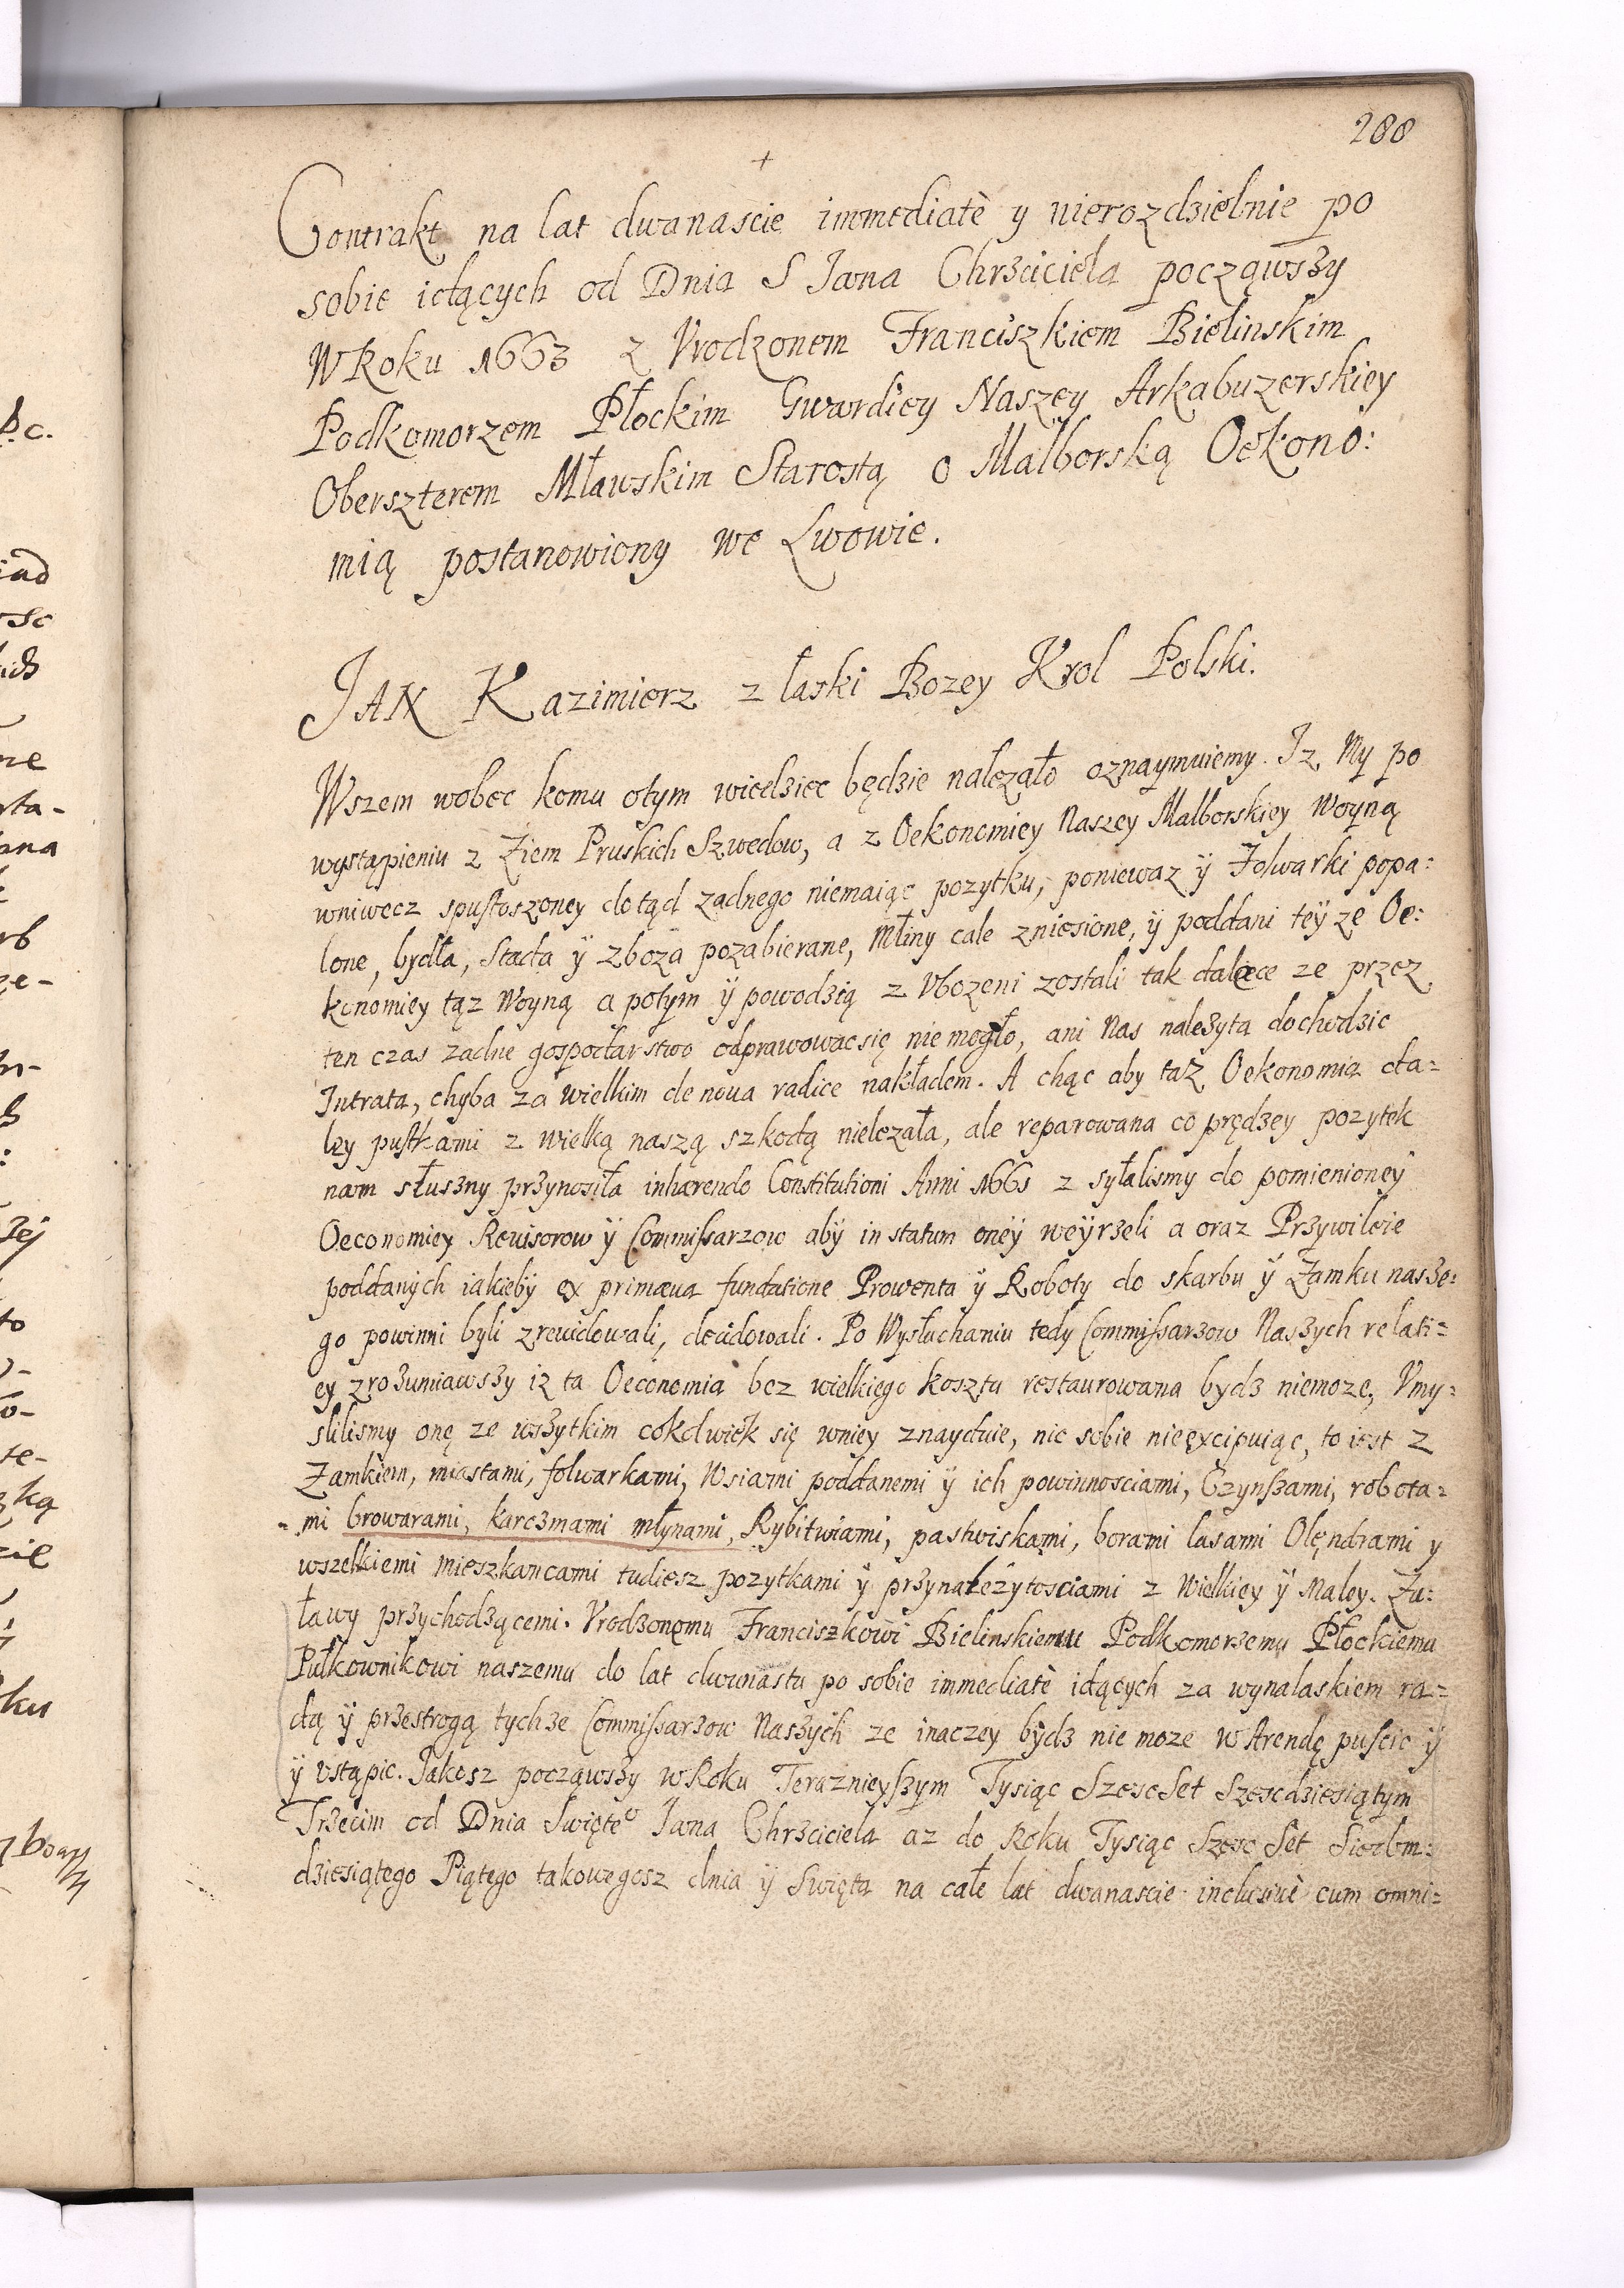 288
+
Contrakt na lat dwanascie immediatè y nierozdzielnie po
sobie idących od Dnia S Jana Chrzciciela począwszy
W Roku 1663 z Vrodzonem Franciszkiem Bielinskim
Podkomorzem Płockim Gwardiey Naszey Arkabuzerskiey
Oberszterem Mławskim Starostą o Malborską Oekono:
mią postanowiony we Lwowie.
JAN Kazimierz z łaski Bozey Krol Polski.
Wszem wobec komu otym wiedziec będzie nalezało oznaymuiemy. Iz My po
wystąpieniu z Ziem Pruskich Szwedow, a z Oekonomiey Naszey Malborskiey Woyną
wniwecz spustoszoney dotąd zadnego niemaiąc pozytku, poniewaz ÿ Folwarki popa:
lone, bydła, Stada ÿ zboza pozabierane, Młiny cale zniesione, ÿ poddani teÿ ze Oe:
konomiey tąz Woyną a potym ÿ powodzią z Vbozeni zostali tak dalece ze przez
ten czas zadne gospodarstwo odprawowac się nie mogło, ani Nas nalezyta dochodzic
Intrata, chyba za wielkim de nova radice nakładem. A chąc aby taż Oekonomia da=
ley pustkami z wielką naszą szkodą nielezała, ale reparowana co prędzey pozytek
nam słuszny przynosiła inhærendo Constitutioni Anni 1661 z syłalismy do pomienioney
Oeconomiey Rewisorow ÿ Commissarzow abÿ in statum oneÿ weÿrzeli a oraz Przywileie
poddanÿch iakiebÿ ex primæva fundatione Prowenta ÿ Roboty do skarbu ÿ Zamku nasze:
go powinni byli zrewidowali, decidowali. Po Wysłuchaniu tedy Commissarzow Naszych relati=
ey zrozumiawszy iz ta Oeconomia bez wielkiego kosztu restaurowana bydz niemoze, Vmy:
slilismy onę ze wszytkim cokolwiek się wniey znayduie, nic sobie nieexcipuiąc, to iest z
Zamkiem, miastami, folwarkami, Wsiami poddanemi ÿ ich powinnosciami, Czynszami, robota=
mi browarami, karczmami młynami, Rybitwiami, pastwiskami, borami lasami Olęndrami y
wszelkiemi mieszkancami tudiesz pozytkami ÿ przynalezytosciami z Wielkiey ÿ Maley. Zu:
ławy przychodzącemi. Vrodzonemu Franciszkowi Bielinskiemu Podkomorzemu Płockiemu
Pułkownikowi naszemu do lat dwunastu po sobie immediatè idących za wynalaskiem ra=
dą ÿ przestrogą tychze Commissarzow Naszÿch ze inaczey bÿdz nie moze w Arendę puscic ÿ
ÿ vstąpic. Jakosz począwszy w Roku Teraznieyszym Tysiąc Szesc Set Szescdziesiątym
Trzecim od Dnia Swięteº Jana Chrzciciela az do Roku Tysiąc Szesc Set Siedm:
dziesiątego Piątego takowegosz dnia ÿ Swięta na całe lat dwanascie inclusivè cum omni=